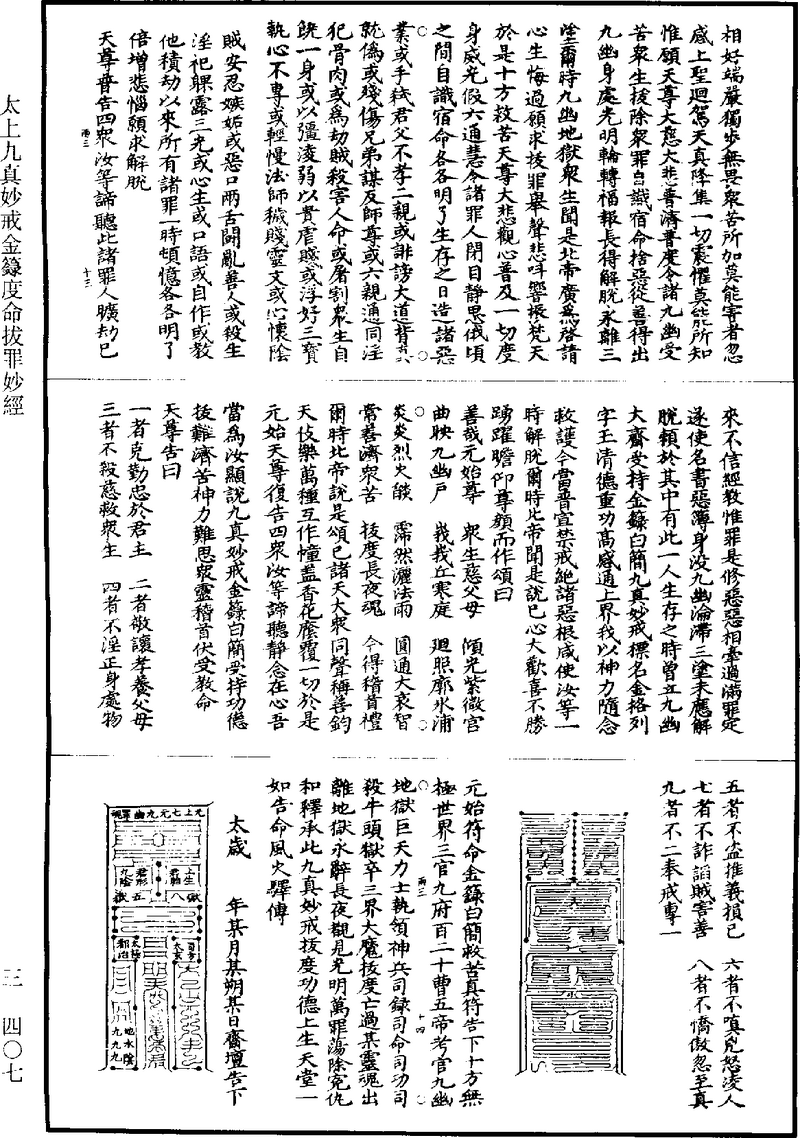 相好端嚴獨步無畏衆苦所加莫能害者忽
感上聖迴駕天真降集一切震懼莫能所知
惟願天尊大慈大悲普濟普度令諸九幽受
苦衆生拔除衆罪自識宿命捨惡從善得出
九幽身處光明輪轉福報長得解脫永離三
塗爾時九幽地獄衆生聞是北帝廣爲啓請
心生悔過願求拔罪舉聲悲呌響振梵天
於是十方救苦天尊大悲觀心普及一切度
身威光假六通慧令諸罪人閉目靜思俄頃
之間自識宿命各各明了生存之日造諸惡
業或手弒君父不孝二親或誹謗大道背真
就僞或殘傷兄弟謀反師尊或六親通同淫
犯骨肉或爲劫賊殺害人命或屠割衆生自
饒一身或以彊淩弱以貴虐賤或浮好三寶
執心不專或輕慢法師穢賤靈文或心懷陰
賊安忍嫉妬或惡口兩舌鬪亂善人或殺生
淫祀躶露三光或心生或口語或自作或教
他積劫以來所有諸罪一時頓憶各各明了
倍增悲惱願求解脫
天尊普告四衆汝等諦聽此諸罪人曠劫已
雨三
十三
來不信經教惟罪是修惡惡相牽過滿罪定
遂使名書惡簿身没九幽淪滯三塗未應解
脫賴於其中有此一人生存之時曾立九幽
大齋受持金籙白簡九真妙戒標名金格列
字玉清德重功高感通上界我以神力隨念
救護今當普宣禁戒絶諸惡根咸使汝等一
時解脫爾時北帝聞是說已心大歡喜不勝
踴躍瞻仰尊顔而作頌曰
善哉元始尊　衆生慈父母　傾光紫微宮
曲映九幽戶　峩峩丘寒庭　廻照廓氷浦
炎炎烈火燄　霈然灑法雨　圓通大哀智
常善濟衆苦　拔度長夜魂　今得稽首禮
爾時北帝說是頌已諸天大衆同聲稱善鈞
天伎樂萬種互作幢蓋香花麽覆一切於是
元始天尊復告四衆汝等諦聽静念在心吾
當爲汝顯說九真妙戒金籙白簡受持功德
拔難濟苦神力難思衆靈稽首伏受教命
天尊告曰
一者克勤忠於君主　二者敬讓孝養父母
三者不殺慈救衆生　四者不淫正身處物
五者不盗推義損已　六者不嗔兇怒凌人
七者不詐諂賊害善　八者不憍傲忽至真
九者不二奉戒專一
元始符命金籙白簡救苦真符告下十方無
極世界三官九府百二十曹五帝考官九幽
雨三
十四
地獄巨天力士執領神兵司録司命司功司
殺牛頭獄卒三界大魔拔度亡過某靈魂出
離地獄永辭長夜觀見光明萬罪蕩除寃仇
和釋承此九真妙戒拔度功德上生天堂一
如告命風火驛傳
太歲　年某月某朔某日齋壇告下
太上九真妙戒金籙度命拔罪妙經
三　四〇七